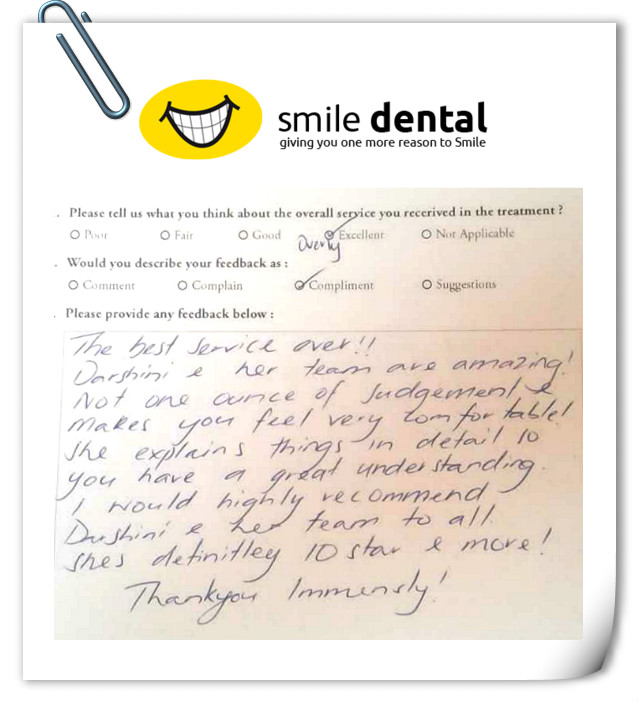 smile dental
giving you one more reason to Smile
. Please tell us what you think about the overall service you recerived in the treatment ?
Poor Fair Good Overly Excellent Not Applicable
. Would you describe your feedback as :
Comment Complain Compliment Suggestions
. Please provide any feedback below :
The best service ever!!
Darshini & her team are amazing!
Not one ounce of Judgement &
makes you feel very comfortable!
She explains things in detail so
you have a great understanding.
I would highly recommend
Darshini & her team to all.
Shes definitley 10 star & more!
Thankyou Immensly!